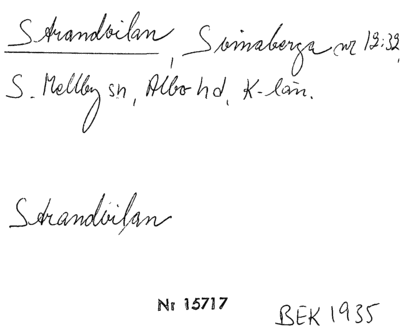 Strandvilan, Svinaberga nr 12:32,
S. Mellby sn, Albo hd, K-län.
Strandvilan
Nr 15717
BEK 1935